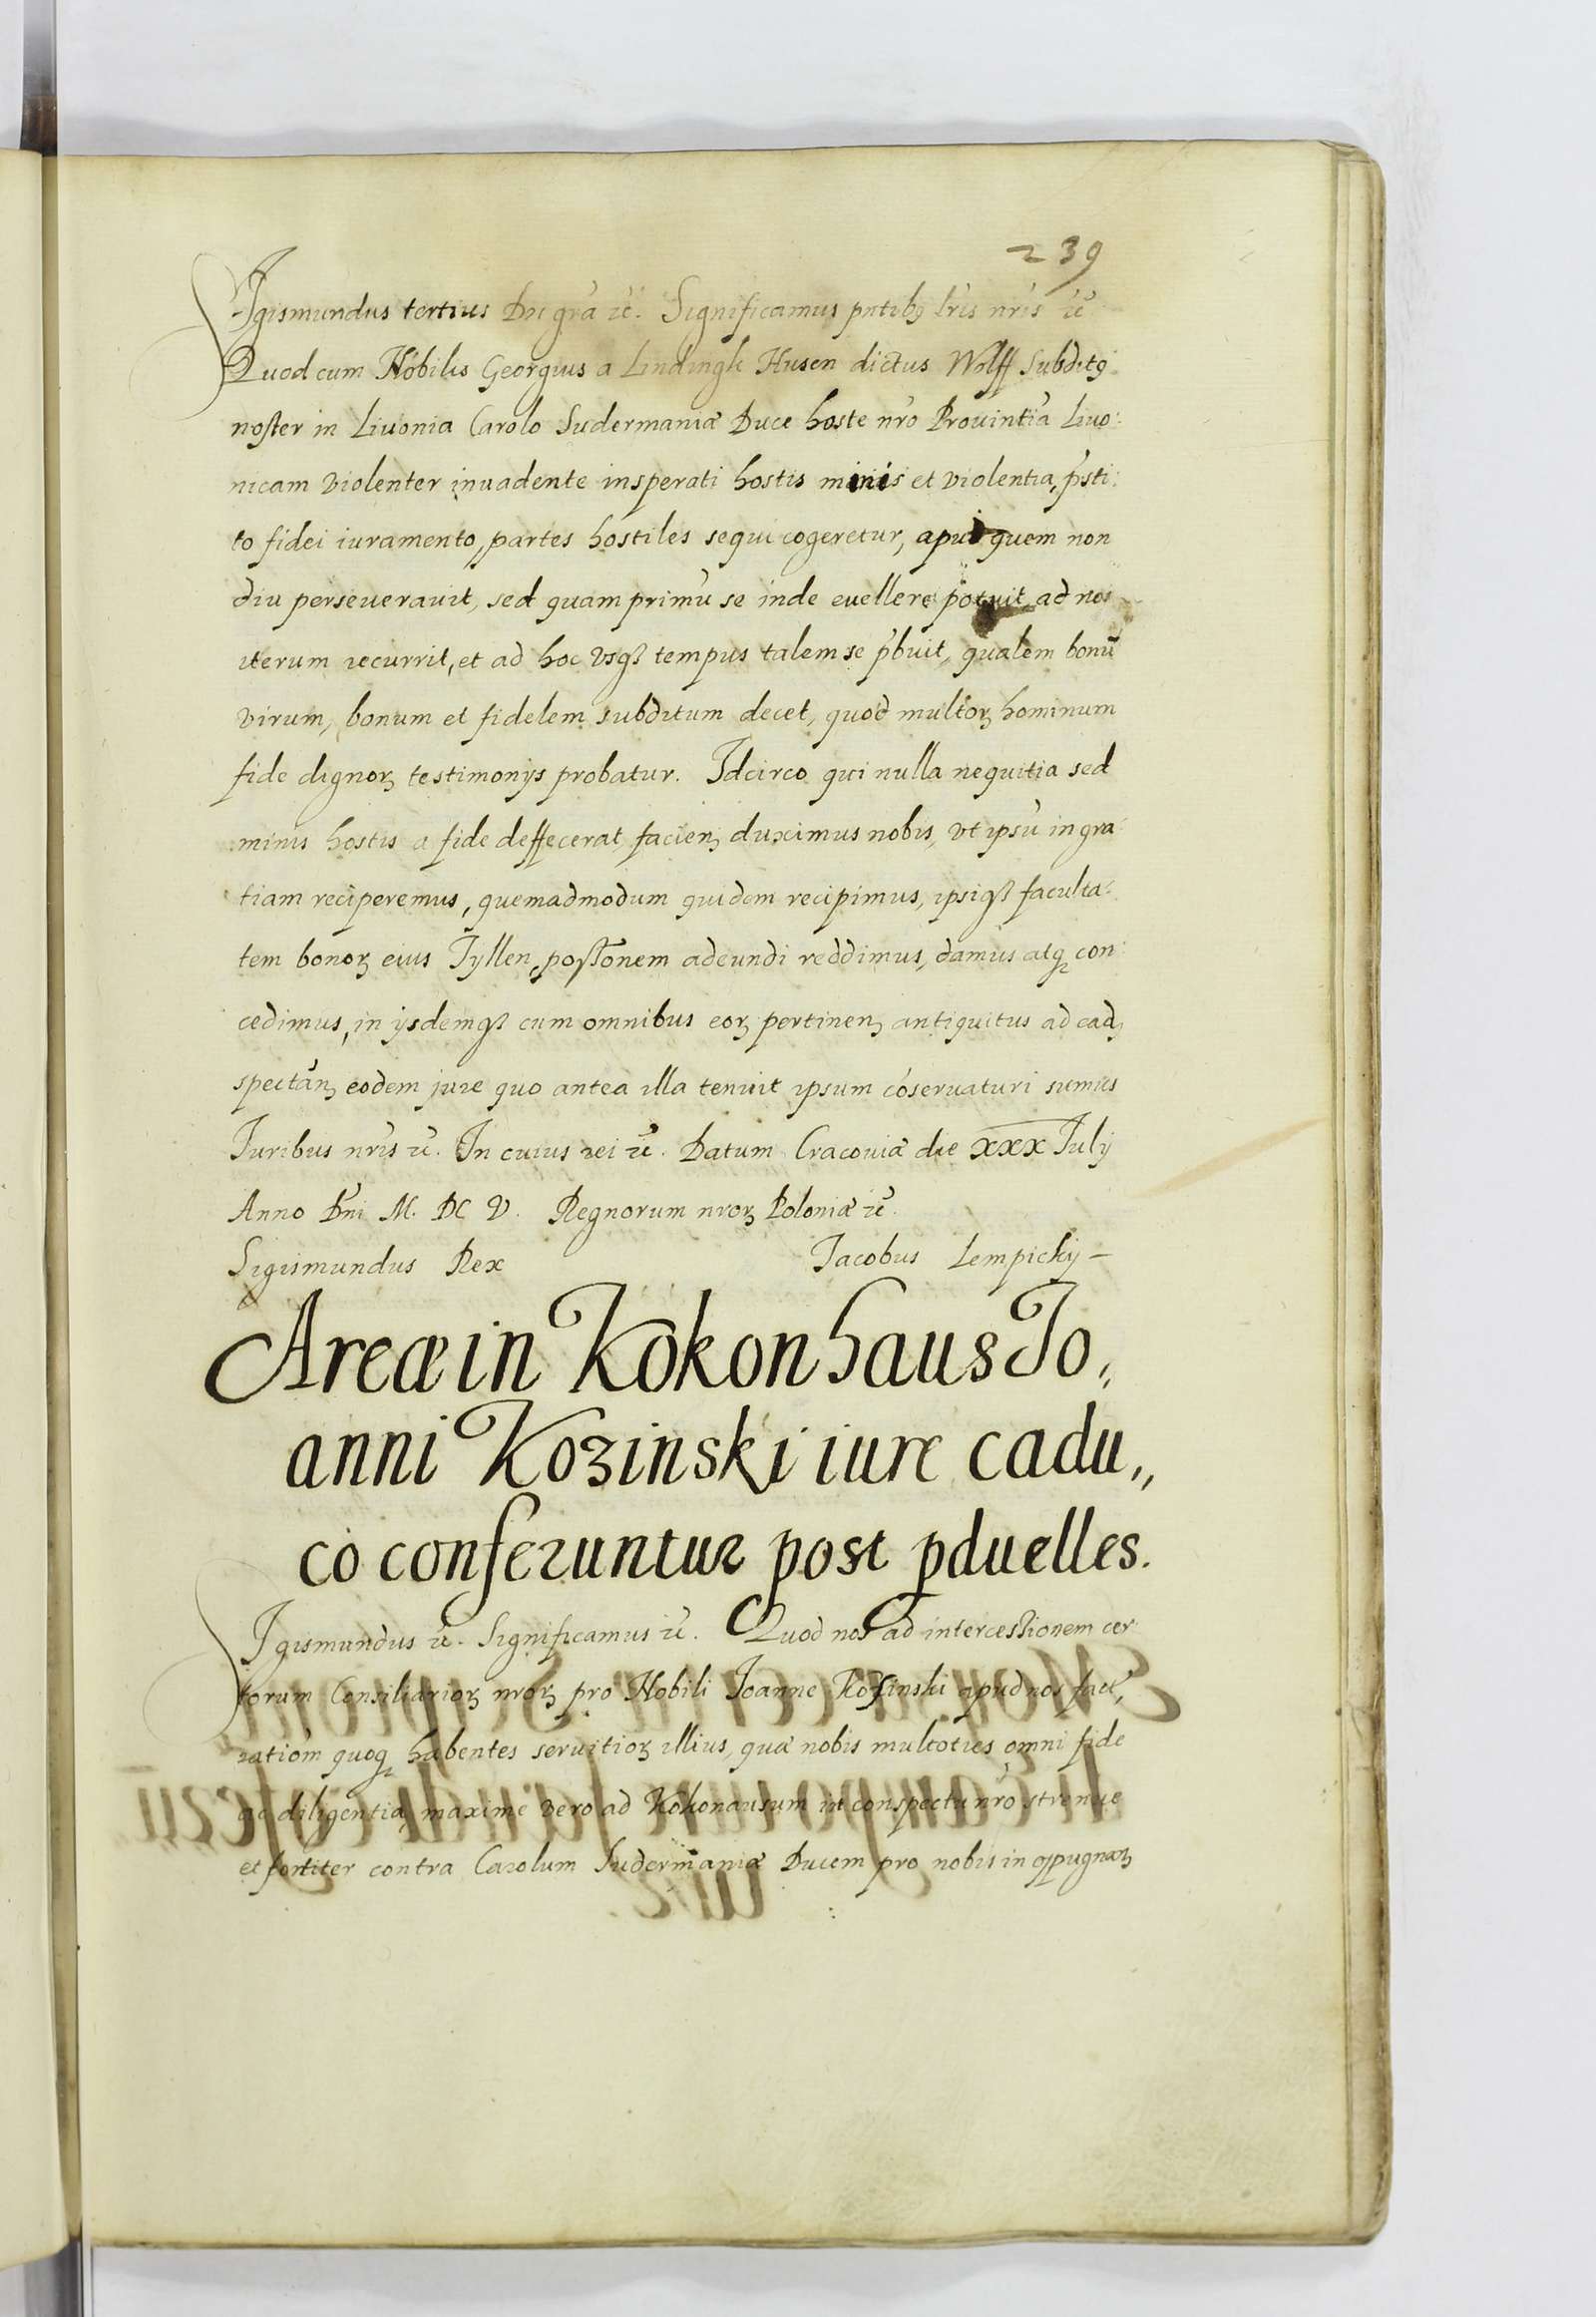 239
Sigismundus tertius Dei gra̅ et̅c. Significamus pn̅tibꝫ lr̅is nr̅is et̅c
Quod cum Nobilis Georgius a Lindingk Husen dictus Wolff Subditꝯ
noster in Livonia Carolo Sudermaniæ Duce hoste nr̅o Provintia̅ Livo:
nicam violenter invadente insperati hostis minis et violentia, p̅sti:
to fidei iuramento, partes hostiles sequi cogeretur, apud quem non
diu perseveravit, sed quam primu̅ se inde evellere potuit ad nos
iterum recurrit, et ad hoc usqꝫ tempus talem se p̅buit, qualem bonu̅
virum, bonum et fidelem subditum decet, quod multoꝝ hominum
fide dignoꝝ testimonijs probatur. Idcirco qui nulla nequitia sed
minis hostis a fide deffecerat facienꝫ duximus nobis, vt ipsu̅ in gra:
tiam reciperemus, quemadmodum quidem recipimus, ipsiqꝫ faculta:
tem bonoꝝ eius Tyllen, possonem adeundi reddimus, damus atqꝫ con:
cedimus, in ijsdemqꝫ cum omnibus eoꝝ pertinenꝫ antiquitus ad eadꝫ
spectanꝫ eodem jure quo antea illa tenuit ipsum co̅servaturi sumus
Iuribus nr̅is et̅c. In cuius rei et̅c. Datum Cracoviæ die XXX Iulij
Anno Dn̅i M. DC V. Regnorum nr̅oꝝ Poloniæ et̅c.
Sigismundus Rex Iacobus Lempicky
Areæ in Kokonhaus Io,,
anni Kozinski iure cadu,,
co conferuntur post ꝑduelles.
Sigismundus et̅c. Significamus et̅c. Quod nos ad intercessionem cer:
torum Consiliarioꝝ nr̅oꝝ pro Nobili Ioanne Kozinski apud nos fact̅,
ratio̅m quoqꝫ habentes servitioꝝ illius, quæ nobis multoties omni fide
ac diligentia, maxime vero ad Kokonausum in conspectu nr̅o strenue
et fortiter contra Carolum Sudermaniæ Ducem pro nobis in oppugnaꝝ